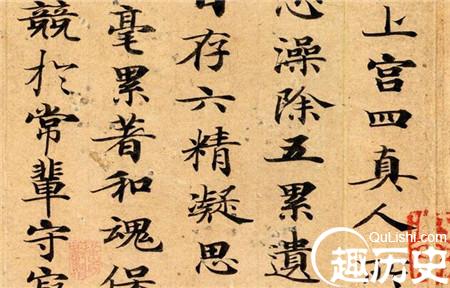 上宫四真人
心澡除五累遺
存六精凝思
毫累著和魂保
競於常輩守
QuLishi.com
趣历史